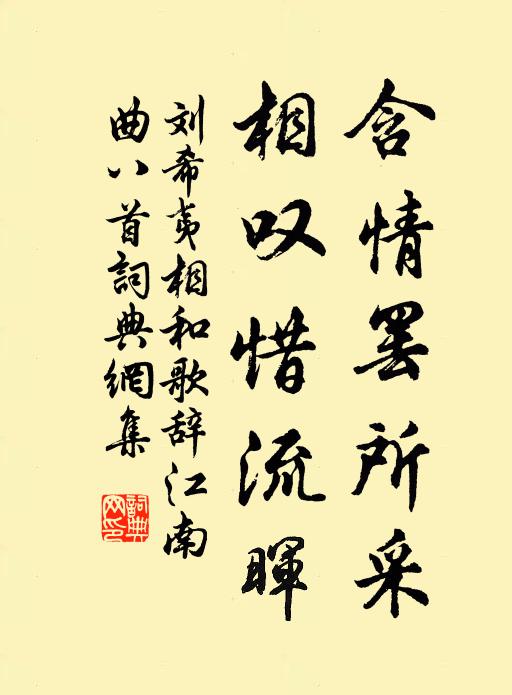 含情罢所采
相叹惜流暉
刘希夷相和歌辞江南
曲八首詞典網集
詞典网印